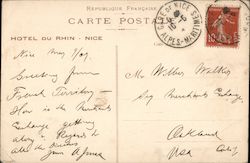 RÉPUBLIQUE FRANÇAISE
CARTE POSTALE
HOTEL DU RHIN - NICE
GARE DE NICE
ALPES-MARITIMES
10
Nice May 7/09
Greeting from
French Territory -
How is the
Exchange getting
along in Regard to
all the
from
Mr Wilber Walker
Merchants Exchange
Oakland
USA Calif